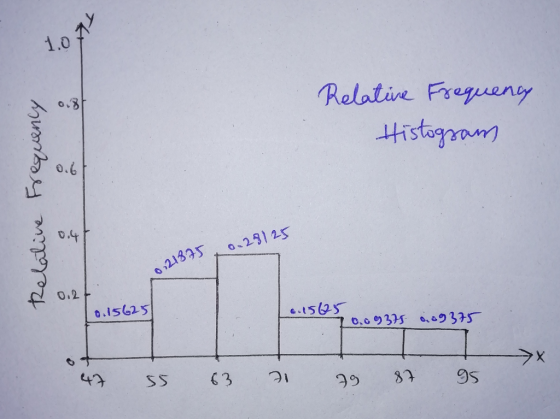 Y
1.0
Relative Frequency
Histogram
0.8
0.6
0.4
0.2
0
Relative Frequency
0.15625
0.21875
0.28125
0.15625
0.09375
0.09375
X
47 55 63 71 79 87 95